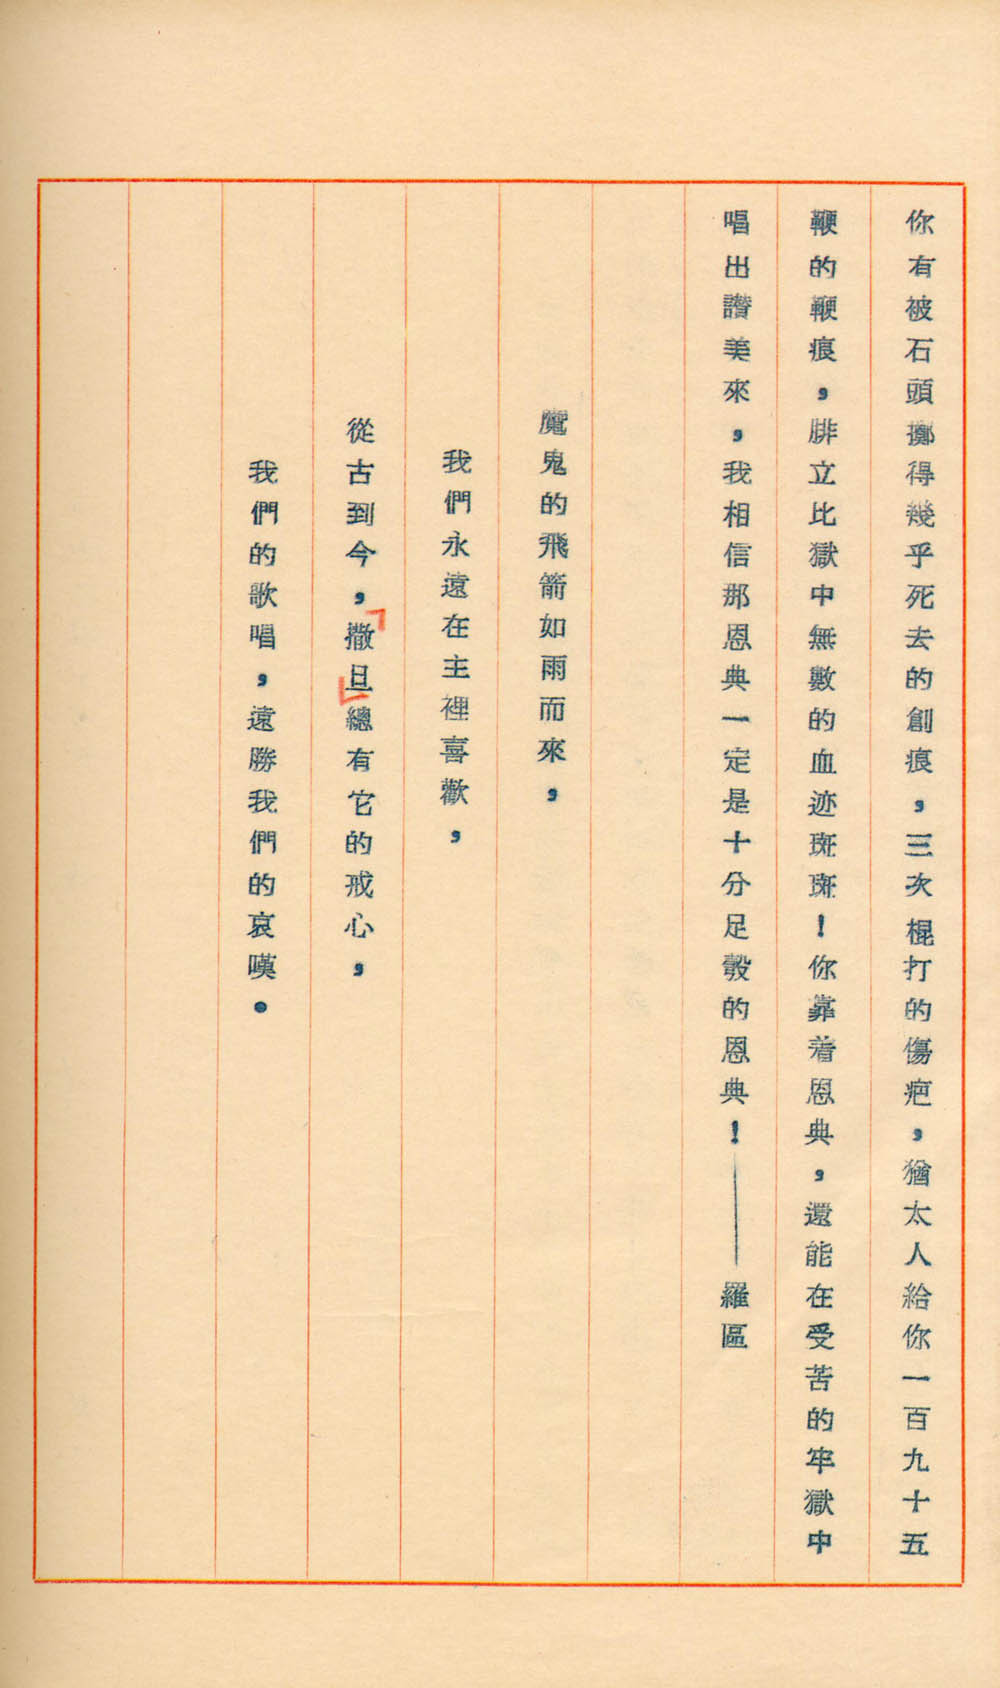 你有被石頭擲得幾乎死去的創痕，三次棍打的傷疤，猶太人給你一百九十五
鞭的鞭痕，腓立比獄中無數的血迹斑斑！你靠着恩典，還能在受苦的牢獄中
唱出讚美來，我相信那恩典一定是十分足彀的恩典！——羅區
魔鬼的飛箭如雨而來，
我們永遠在主裡喜歡，
從古到今，「撒旦」總有它的戒心，
我們的歌唱，遠勝我們的哀嘆。